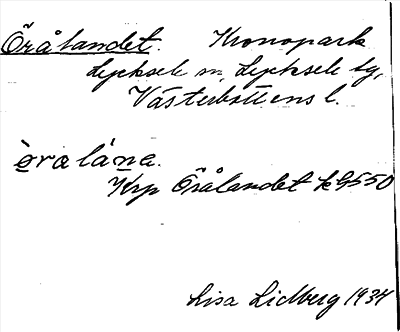 Örålandet. Kronopark
Lycksele sn, Lycksele tg,
Västerbottens l.
òralána.
Krp Örålandet k G550
Lisa Lidberg 1934